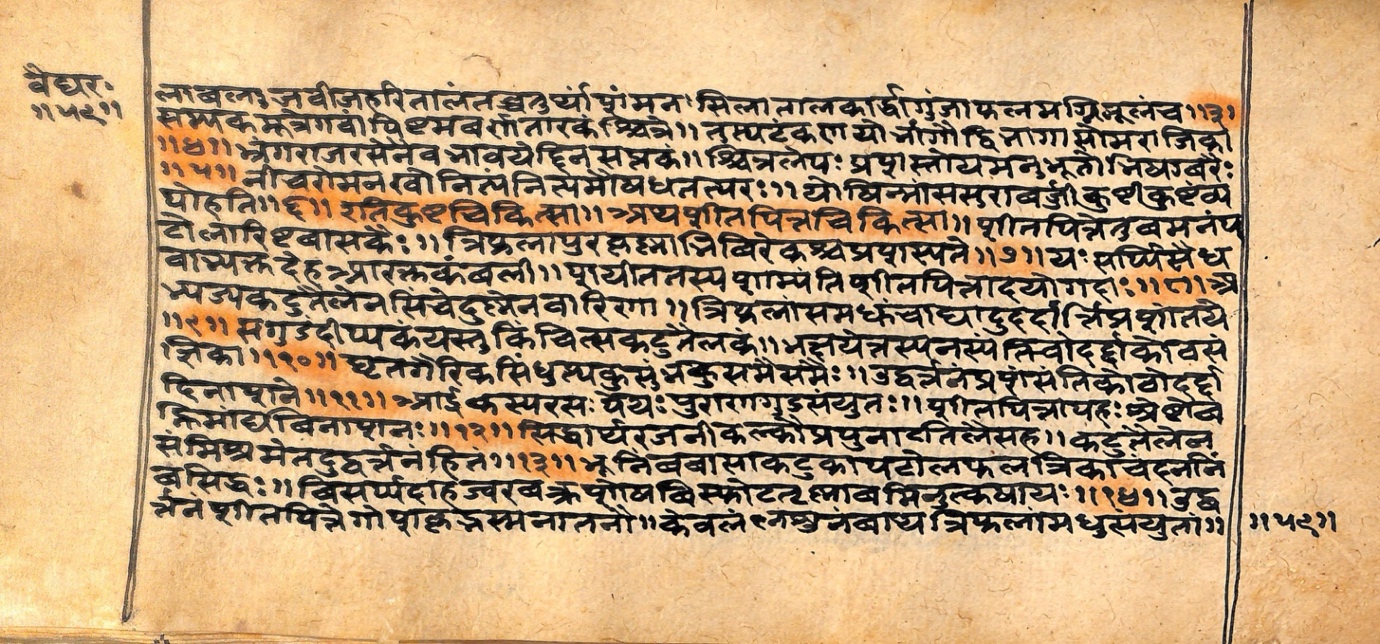 वैद्यर॰
॥५९॥
लावलाु जवीजहरितालंतच्चतुर्थांपांमनःसिलातालकार्द्धागुंजाफलमग्निमूलंच॥३॥
सम्यक् मूत्रेगवांपिष्टमवर्णातारकंश्चित्रे॥
॥४॥भृंगराजरसेनैवभावयेद्दिनसप्तकं॥श्चित्रलेपःप्रशस्तोयमनुभूतोभिषग्वरैः
॥५॥नीचरोमनखोनित्यंनित्यमौषधतत्परः॥योषिन्मांससुरावर्जीकुष्टीकुष्टव्य
पोहति॥६॥इतिकुष्टचिकित्सा॥अथशीतपित्तचिकित्सा॥शीतपित्तेतुवमनंप
टोलारिष्टवासकैः॥त्रिफलापुरकृह्माभिर्विरेकश्चप्रशस्यते॥७॥यःसर्प्पिसैंध
वाभ्यक्तदेहआरक्तकंबली॥शायीततस्यशाम्यंतिशीतपित्तादयोगदाः॥८॥अ
भ्यज्यकटुतैलेनसिंचेदुष्मेनवारिणा॥त्रिफलांसमधुंखाद्यादुदर्दार्त्तिप्रशांतये
॥९॥सगुडंदीप्यकंयस्तुकिंचित्सकटुतैलकं॥भक्षयेत्तस्यनस्यंतिवोदर्द्दाकोवसे
त्तिका॥१०॥घृतगैरिकसिंधुत्थकुसुंभकुसमैसमैः॥उद्वर्त्तनंप्रशंसंतिकोवोदर्द्दा
दिनाशने॥११॥आर्द्रकस्यरसःपेयःपुराणगुडसंयुतः॥शीतपित्तापहःश्रेष्टोव
ह्निमांद्यविनाशनः॥१२॥सिद्धार्थरजनीकल्कौप्रपुनाटतिलैसह॥कटुतैलेन
संमिश्रमेतदुद्वर्त्तनंहितं॥१३॥भूनिंबवासाकटुकापटोलफलत्रिकाचंदननिं
बसिद्धः॥विसर्प्पदाहज्वरवक्त्रशोषविस्फोटतृष्णावमिनुत्कषायः॥१४॥उद्व
र्त्तनंशीतपित्तेगोशकृद्भस्मनातनौ॥केवलं त्रिफलांमधुसंयुतां॥
॥५९॥